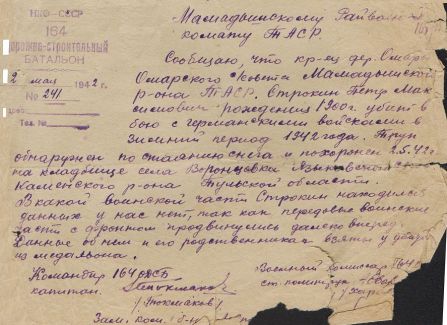 НКО-СССР
164
ДОРОЖНО-СТРОИТЕЛЬНЫЙ
БАТАЛЬОН
2 мая 1942 г.
№ 241
Тел. №
Мамадышскому Райвоен-
комату ТАСР
Сообщаю, что кр-нц дер. Омары
Омарского с/совета Мамадышского
р-она ТАСР. Строкин Петр Мак
симович рождения 1900г. убит в
бою с германскими войсками в
зимний период 1942 года. Труп
обнаружен по стаянию снега и похоронен 2.5.42г
на кладбище села Воронцовка
Каменского р-она Тульской области
В какой воинской части Строкин находился
данных у нас нет, так как передовые воинские
части с фронтом продвинулись далеко вперед.
Данные о нем и его родственниках взяты у убитого
из медальона.
Командир 164 ДСБ
капитан
/Токмаков/
Военный комиссар 164
ст. политрук
Зам. ком.